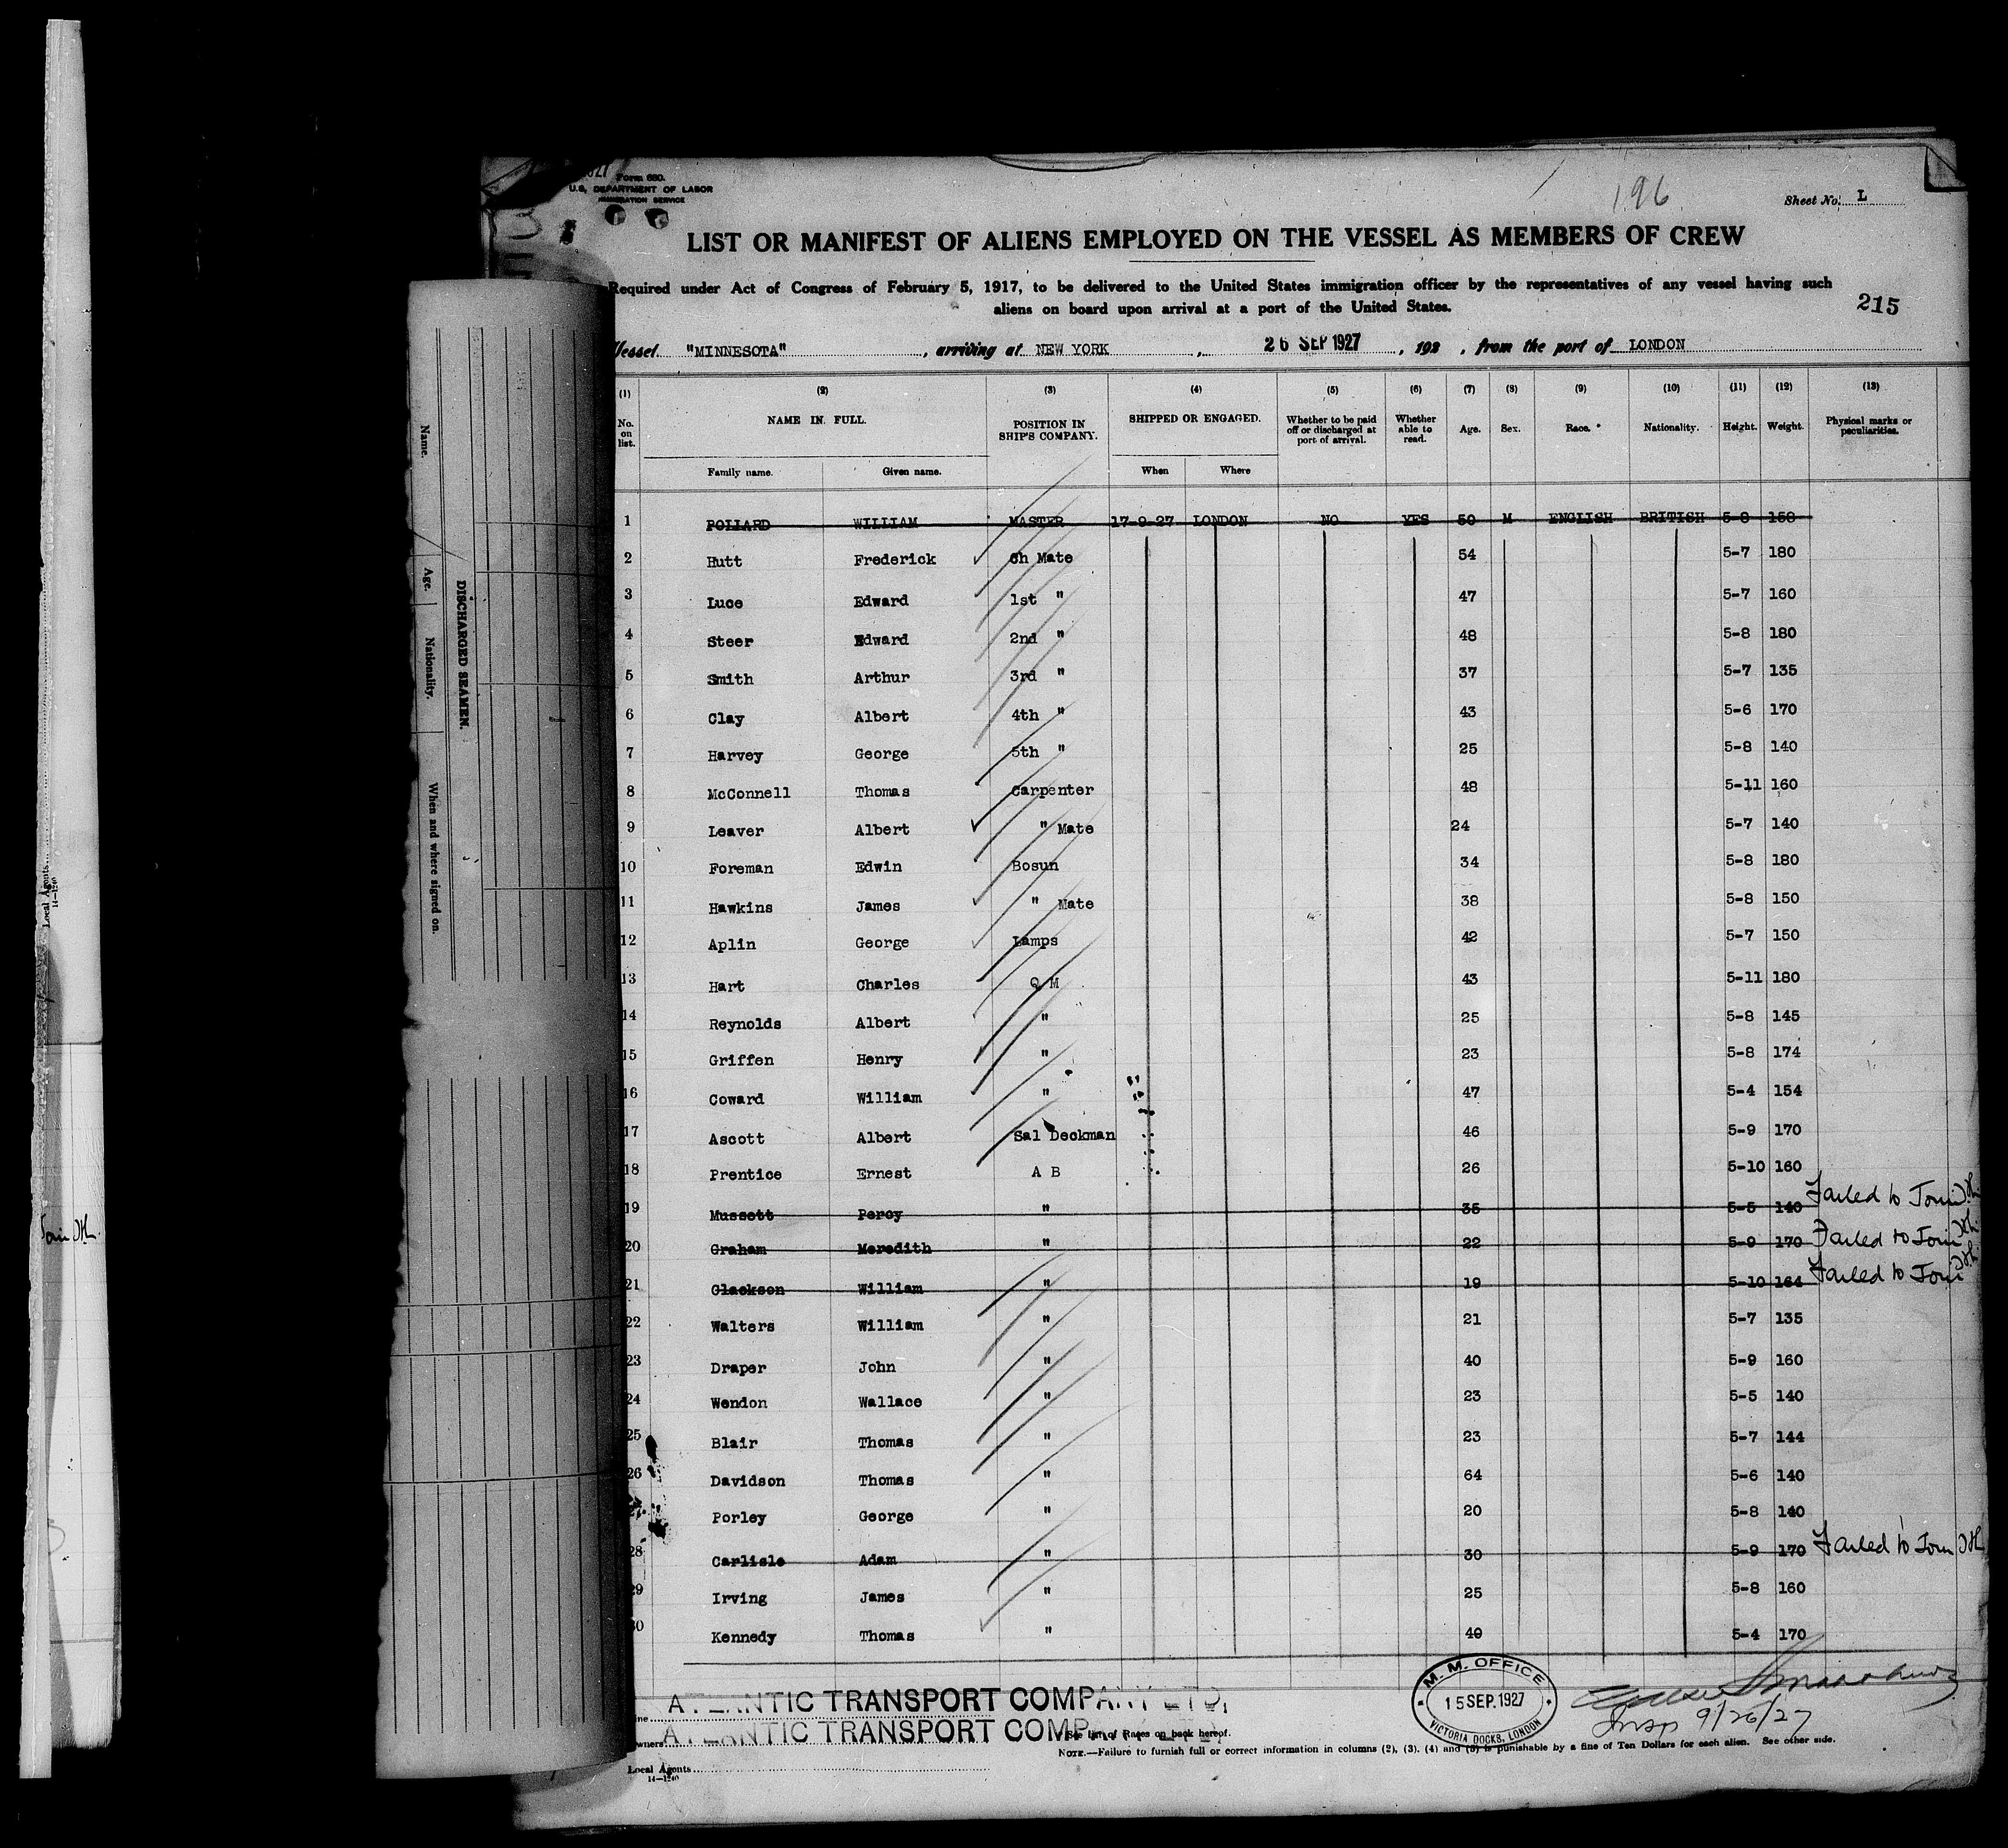 Form 680.
U.S. DEPARTMENT OF LABOR
IMMIGRATION SERVICE
196
Sheet No. L
LIST OR MANIFEST OF ALIENS EMPLOYED ON THE VESSEL AS MEMBERS OF CREW
Required under Act of Congress of February 5, 1917, to be delivered to the United States immigration officer by the representatives of any vessel having such
aliens on board upon arrival at a port of the United States.
215
Vessel "MINNESOTA", arriving at NEW YORK, 26 SEP 1927, 192 , from the port of LONDON
(1) (2) (3) (4) (5) (6) (7) (8) (9) (10) (11) (12) (13)
No. on list. NAME IN FULL. POSITION IN SHIP'S COMPANY. SHIPPED OR ENGAGED. Whether to be paid off or discharged at port of arrival. Whether able to read. Age. Sex. Race.* Nationality. Height. Weight. Physical marks or peculiarities.
Family name. Given name. When Where
1 POLLARD WILLIAM MASTER 17-9-27 LONDON NO YES 50 M ENGLISH BRITISH 5-8 158
2 Hutt Frederick Ch Mate 54 5-7 180
3 Luce Edward 1st " 47 5-7 160
4 Steer Edward 2nd " 48 5-8 180
5 Smith Arthur 3rd " 37 5-7 135
6 Clay Albert 4th " 43 5-6 170
7 Harvey George 5th " 25 5-8 140
8 McConnell Thomas Carpenter 48 5-11 160
9 Leaver Albert " Mate 24 5-7 140
10 Foreman Edwin Bosun 34 5-8 180
11 Hawkins James " Mate 38 5-8 150
12 Aplin George Lamps 42 5-7 150
13 Hart Charles Q M 43 5-11 180
14 Reynolds Albert " 25 5-8 145
15 Griffen Henry " 23 5-8 174
16 Coward William " 47 5-4 154
17 Ascott Albert Sal Deckman 46 5-9 170
18 Prentice Ernest A B 26 5-10 160
19 Mussett Percy " 35 5-5 140 Failed to Join
20 Graham Meredith " 22 5-9 170 Failed to Join
21 Clackson William " 19 5-10 164 Failed to Join
22 Walters William " 21 5-7 135
23 Draper John " 40 5-9 160
24 Wendon Wallace " 23 5-5 140
25 Blair Thomas " 23 5-7 144
26 Davidson Thomas " 64 5-6 140
Porley George " 20 5-8 140
28 Carlisle Adam " 30 5-9 170 Failed to Join
29 Irving James " 25 5-8 160
30 Kennedy Thomas " 40 5-4 170
ATLANTIC TRANSPORT COMPANY LTD.
ATLANTIC TRANSPORT COMPANY
See list of Races on back hereof.
NOTE.—Failure to furnish full or correct information in columns (2), (3), (4) and (5) is punishable by a fine of Ten Dollars for each alien. See other side.
Local Agents
14—1240
M. M. OFFICE
15 SEP. 1927
VICTORIA DOCKS, LONDON
Insp 9/26/27
DISCHARGED SEAMEN.
Name.
Age.
Nationality.
When and where signed on.
Local Agents
14—1240